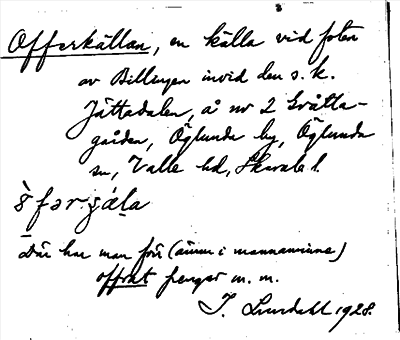 Offerkällan, en källa vid foten
av Billingen invid den s. k.
Jättadalen, å nr 2 Gråtta-
gården, Öglunda by, Öglunda
sn, Valle hd, Skarab. l.
Där har man förr (ännu i mannaminne)
offrat pengar m. m.
J. Lundahl 1928.